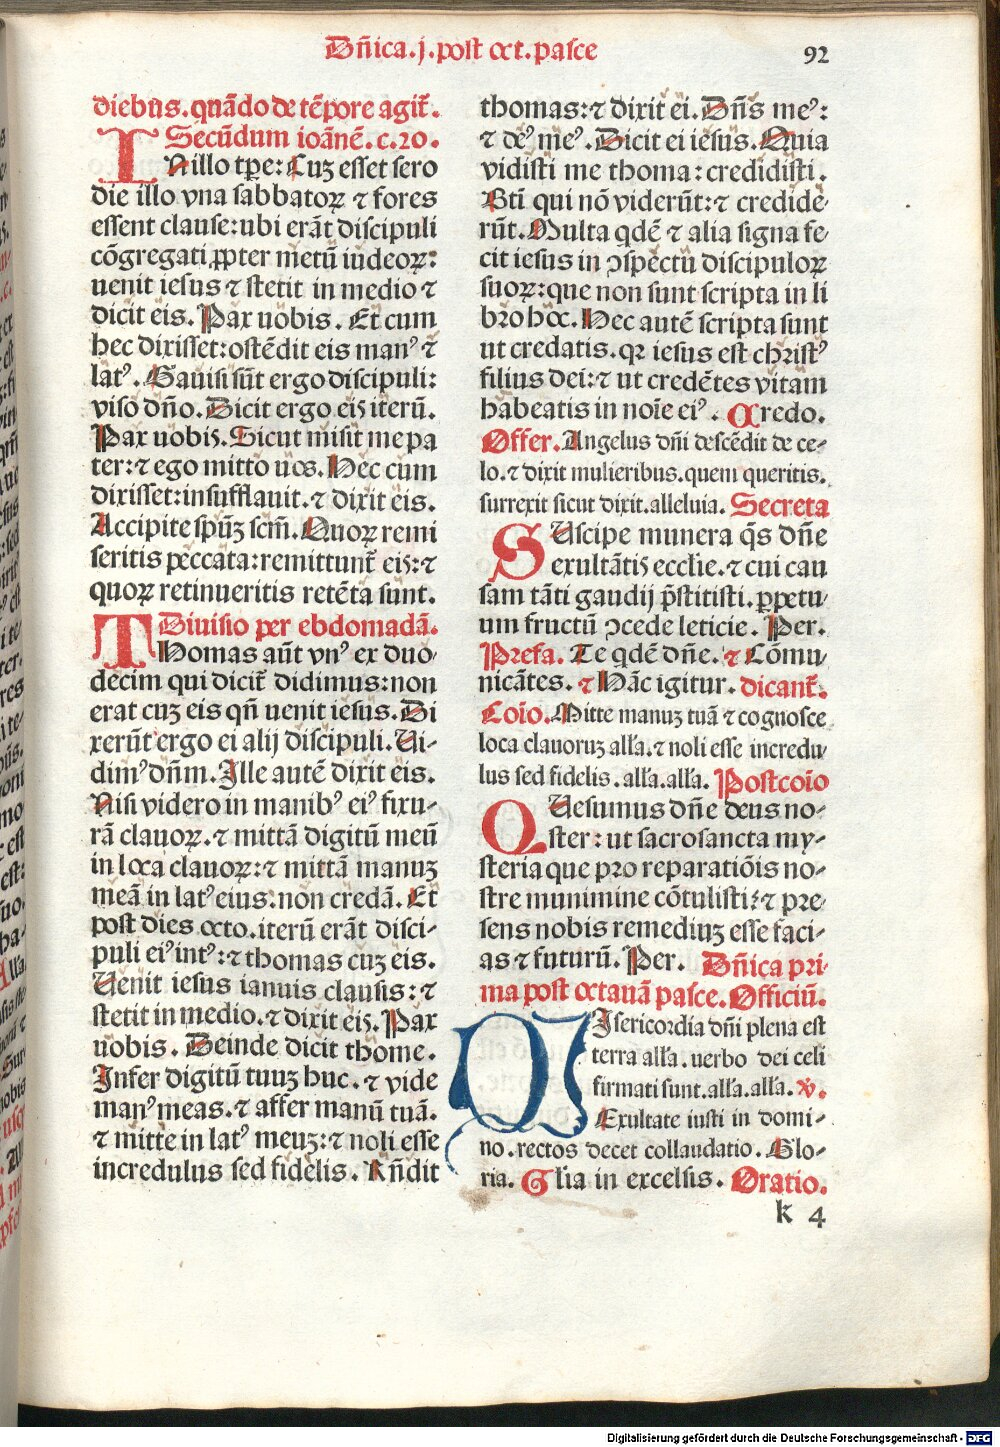 Dñica.j.post oct.pasce
92
diebus.quãdo de tẽpore agit̃.
Secũdum ioãnẽ.c.20.
IN illo tp̃e: Cuʒ esset sero
die illo vna sabbatoꝝ ⁊ fores
essent clause:ubi erãt discipuli
cõgregati ꝓpter metũ iudeoꝝ:
uenit iesus ⁊ stetit in medio ⁊
dicit eis. Pax uobis. Et cum
hec dixisset:ostẽdit eis manꝰ ⁊
latꝰ. Gauisi sũt ergo discipuli:
viso dño. Dicit ergo eis iterũ.
Pax uobis. Sicut misit me pa
ter:⁊ ego mitto uos. Hec cum
dixisset:insufflauit.⁊ dixit eis.
Accipite spũʒ scm̃. Quoꝝ remi
seritis peccata:remittunt̃ eis:⁊
quoꝝ retinueritis retẽta sunt.
Diuisio per ebdomadã.
THomas aũt vnꝰ ex duo-
decim qui dicit̃ didimus:non
erat cuʒ eis qñ uenit iesus. Di
xerũt ergo ei alij discipuli. Vi-
dimꝰ dñm. Ille autẽ dixit eis.
Nisi videro in manibꝰ eiꝰ fixu-
rã clauoꝝ.⁊ mittã digitũ meũ
in loca clauoꝝ:⁊ mittã manuʒ
meã in latꝰ eius:non credã. Et
post dies octo.iterũ erãt disci-
puli eiꝰ intꝰ:⁊ thomas cuʒ eis.
Venit iesus ianuis clausis:⁊
stetit in medio.⁊ dixit eis. Pax
uobis. Deinde dicit thome.
Infer digitũ tuuʒ huc.⁊ vide
manꝰ meas.⁊ affer manũ tuã.
⁊ mitte in latꝰ meuʒ:⁊ noli esse
incredulus sed fidelis. Rñdit
thomas:⁊ dixit ei. Dñs meꝰ:
⁊ deꝰ meꝰ. Dicit ei iesus. Quia
vidisti me thoma:credidisti.
Bti̅ qui nõ viderũt:⁊ credide-
rũt. Multa qdẽ ⁊ alia signa fe-
cit iesus in ꝯspectu discipuloꝝ
suoꝝ:que non sunt scripta in li
bro hoc. Hec autẽ scripta sunt
ut credatis.qꝛ iesus est christꝰ
filius dei:⁊ ut credẽtes vitam
habeatis in noĩe eiꝰ. Credo.
Offer. Angelus dñi descẽdit de ce-
lo.⁊ dixit mulieribus.quem queritis.
surrexit sicut dixit.alleluia. Secreta
SUscipe munera q̃s dñe
exultãtis ecclie.⁊ cui cau
sam tãti gaudij p̃stitisti.ꝑpetu-
um fructũ ꝯcede leticie. Per.
Prefa. Te qdẽ dñe. ⁊ Cõmu-
nicãtes. ⁊ Hãc igitur. dicant̃.
Coĩo. Mitte manuʒ tuã ⁊ cognosce
loca clauoruʒ alľa.⁊ noli esse incredu-
lus sed fidelis.alľa.alľa. Postcoĩo
QUesumus dñe deus no-
ster: ut sacrosancta my-
steria que pro reparatiõis no-
stre munimine cõtulisti:⁊ pre-
sens nobis remediuʒ esse faci-
as ⁊ futurũ. Per. Dñica pri-
ma post octauã pasce. Officiũ.
MIsericordia dñi plena est
terra alľa.uerbo dei celi
firmati sunt.alľa.alľa. v.
Exultate iusti in domi-
no.rectos decet collaudatio. Glo-
ria. Gľia in excelsis. Oratio.
k 4
Digitalisierung gefördert durch die Deutsche Forschungsgemeinschaft - DFG